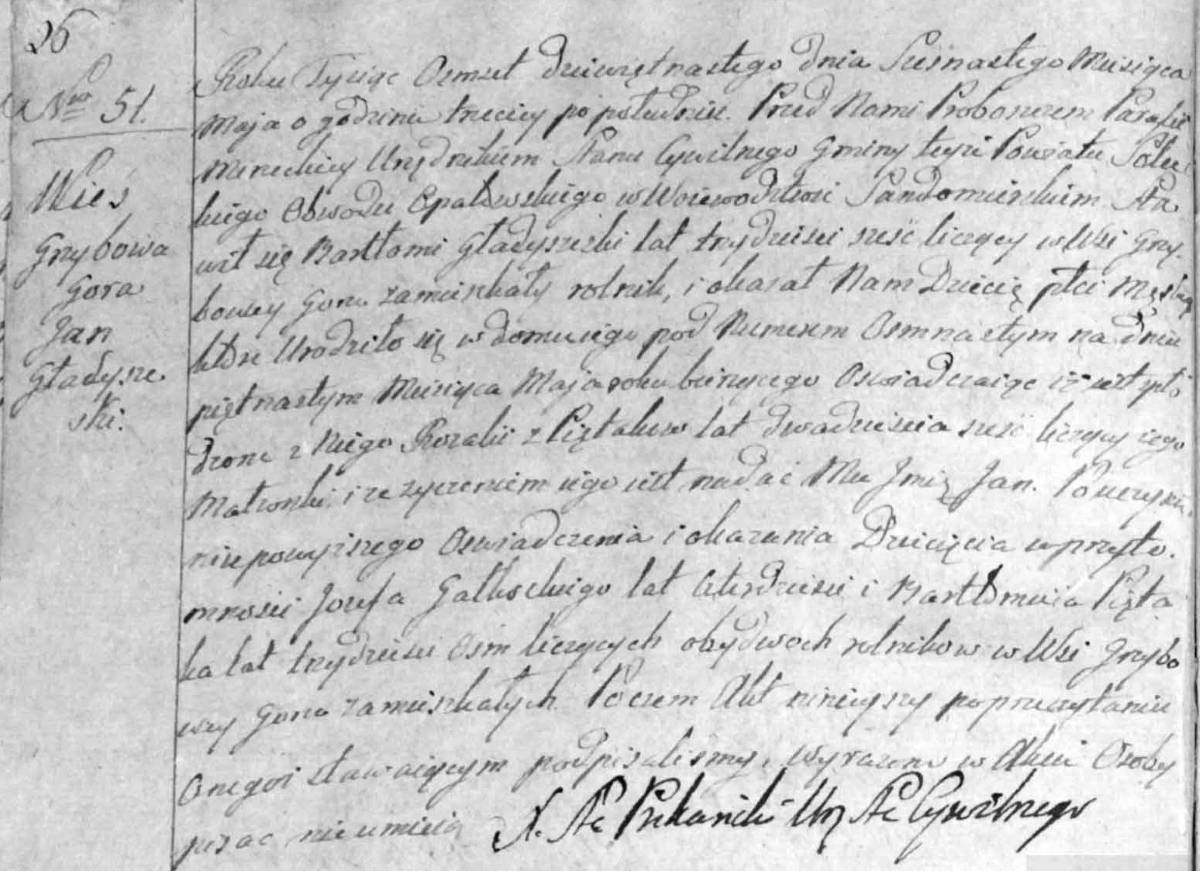 26
Nro 51.
Wieś
Grzybowa
Gora
Jan
Gładysze
ski.
Roku Tysiąc Osmset dziewiętnastego dnia Szesnastego Miesiąca
Maja o godzinie trzeciey po południu. Przed Nami Proboszczem Parafii
Mireckiey Urzędnikiem Stanu Cywilnego Gminy teyże Powiatu Sołec
kiego Obwodu Opatowskiego w Woiewodztwie Sandomirskim Sta
wił się Bartłomi Gładyszeski lat trzydzieści sześć liczący w Wsi Grzy
bowey Gorze zamieszkały rolnik, i okazał Nam Dziecię płci Męskiey
które Urodziło się w domu iego pod Numerem Osmnastym na dniu
piętnastym Miesiąca Maja roku bieżącego Oswiadczaiąc iż iest spło
dzone z Niego Rozalii z Piętakow lat dwadzieścia sześć liczącey iego
Małzonki, i ze życzeniem iego iest nadać Mu Imię Jan. Po uczynie
niu powyższego Oswiadczenia i okazania Dziecięcia w przyto.
mności Jozefa Gałkoskiego lat czterdzieści i Bartłomieia Pięta
ka lat trzydzieści Osm liczących obydwoch rolnikow w Wsi Grzybo
wey Gorze zamieszkałych. Poczem Akt ninieyszy po przeczytaniu
Onegoż stawaiącym podpisaliśmy, wyrażone w Akcie Osoby
pisać nieumieią X. Urz St Cywilnego